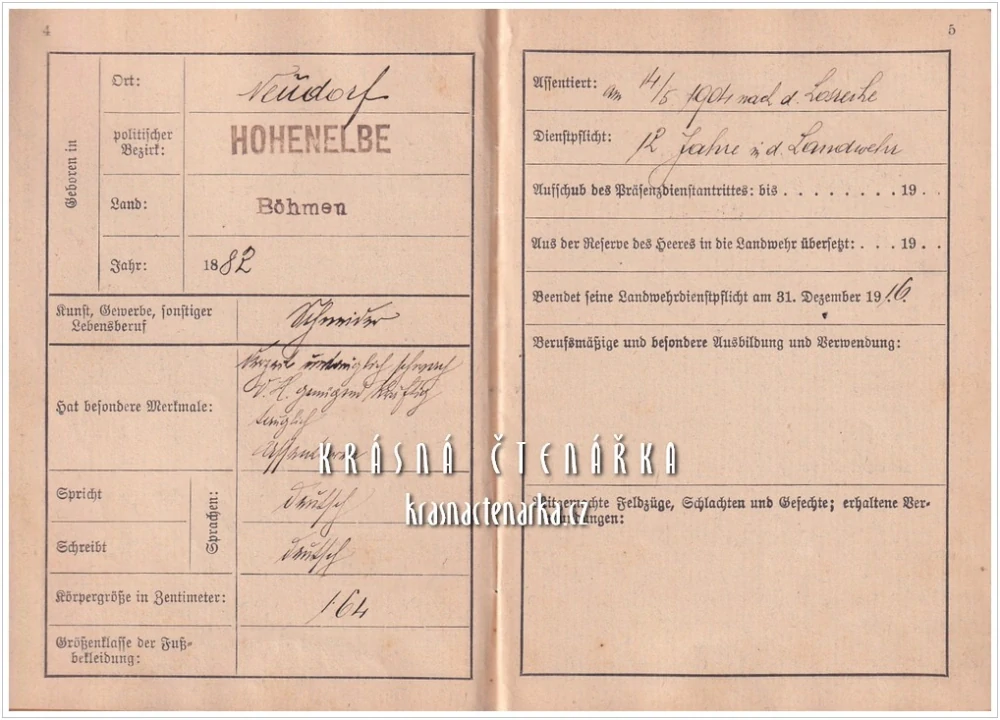 4
Geboren in
Ort: Neudorf
politischer
Bezirk: HOHENELBE
Land: Böhmen
Jahr: 1882
Kunst, Gewerbe, sonstiger
Lebensberuf Schneider
Hat besondere Merkmale:
untauglich schwach
genügend kräftig
tauglich
Sprachen:
Spricht deutsch
Schreibt deutsch
Körpergröße in Zentimeter: 164
Größenklasse der Fuß-
bekleidung:
5
Assentiert: am 14/5 1904 nach d.
Dienstpflicht: 12 Jahre i. d. Landwehr
Aufschub des Präsenzdienstantrittes: bis . . . . . . . . 19 . .
Aus der Reserve des Heeres in die Landwehr übersetzt: . . . 19 . .
Beendet seine Landwehrdienstpflicht am 31. Dezember 1916.
Berufsmäßige und besondere Ausbildung und Verwendung:
Feldzüge, Schlachten und Gefechte; erhaltene Ver-
KRÁSNÁ ČTENÁŘKA
krasnactenarka.cz